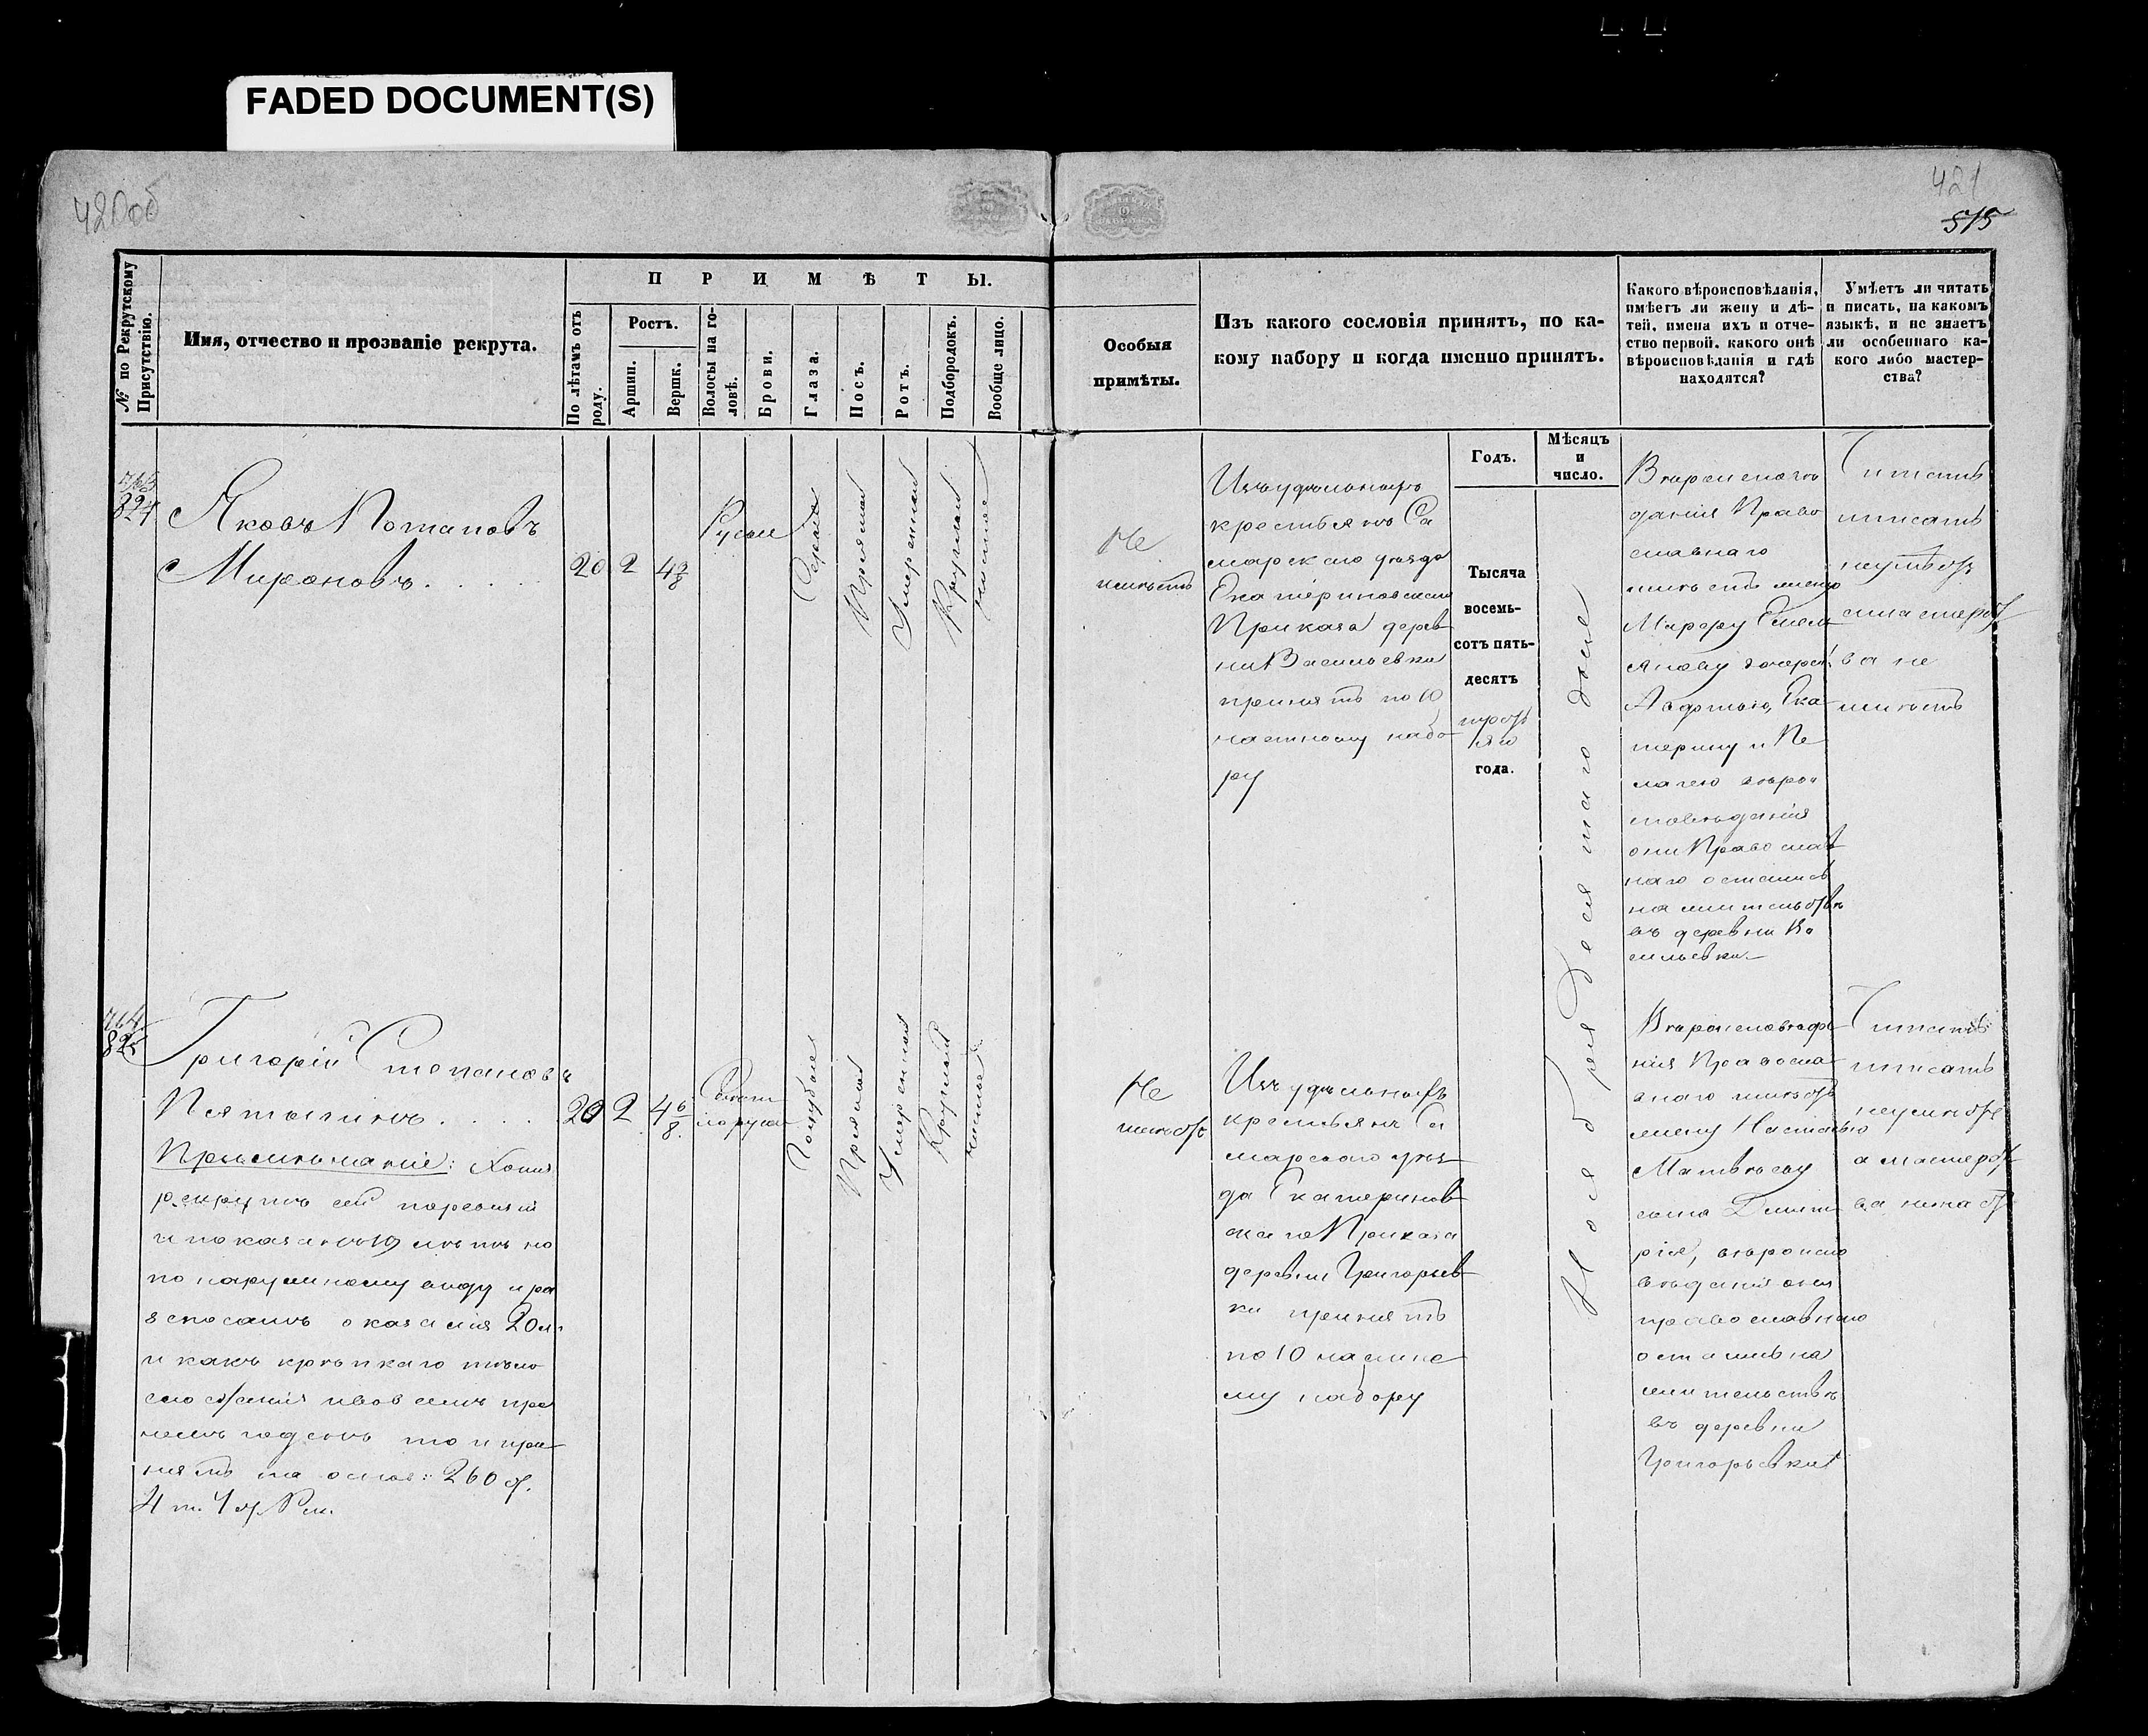 FADED DOCUMENT(S)
420об
421
515
№ по Рекрутскому
Присутствію.
Имя, отчество и прозваніе рекрута.
ПРИМѢТЫ.
По лѣтамъ отъ
роду.
Ростъ.
Аршин.
Вершк.
Волосы на го-
ловѣ.
Брови.
Глаза.
Носъ.
Ротъ.
Подбородокъ.
Вообще лицо.
Особыя
примѣты.
Изъ какого сословія принятъ, по ка-
кому набору и когда именно принятъ.
Годъ.
Мѣсяцъ
и
число.
Какого вѣроисповѣданія,
имѣетъ ли жену и дѣ-
тей, имена ихъ и отче-
ство первой, какого онѣ
вѣроисповѣданія и гдѣ
находятся?
Умѣетъ ли читать
и писать, на какомъ
языкѣ, и не знаетъ
ли особеннаго ка-
кого либо мастер-
ства?
763
824
Яковъ Потаповъ
Мироновъ.
20
2
4 2/8
Русые
Сѣрые
Прямой
Умеренной
Круглой
чистое
Не
имѣетъ
Изъ удѣльныхъ
крестьянъ Са
марскаго уѣзда
Екатериновскаго
Приказа дерев
ни Васильевки
принятъ по 10
частному набо
ру
Тысяча
восемь-
сотъ пять-
десять
третьяго
года.
Ноября десятаго дня
Вѣроисповѣ
данія Право
славнаго
имѣетъ жену
Марфу Емель
янову дочерей
Авдотью, Ека
терину и Пе
лагею вѣрои
сповѣданія
они Православ
наго остались
на жительствѣ
въ деревни Ва
сильевки
Читать
иписать
неумѣетъ
имастерст
ва не
имѣетъ
764
825
Григорій Степановъ
Пятыгинъ.
Примѣчаніе: Хотя
рекрутъ сей
и показанъ 19 лѣтъ но
по наружному виду и ра
зспосамъ оказался 20 л.
и какъ крѣпкаго тѣло
сложенія ивовсемъ пре
немъ годенъ то и при
нятъ на основ: 260 ст.
4 т. 1 ч. Рек.
20
2
4 6/8
Светло
русые
Голубые
Прямой
Умеренной
Круглой
чистое
Не
имѣетъ
Изъ удѣльныхъ
крестьянъ Са
марскаго уѣз
да Екатеринов
скаго Приказа
деревни Григорьев
ки принятъ
по 10 частно
му набору
Вѣроисповѣда
нія Правосла
внаго имѣетъ
жену Настасью
Матвѣеву
сына Дмит
рія, вѣроиспо
вѣданія они
православнаго
остались на
жительствѣ
въ деревни
Григорьевки
Читать
иписать
неумѣетъ
а мастерст
ва незнаетъ